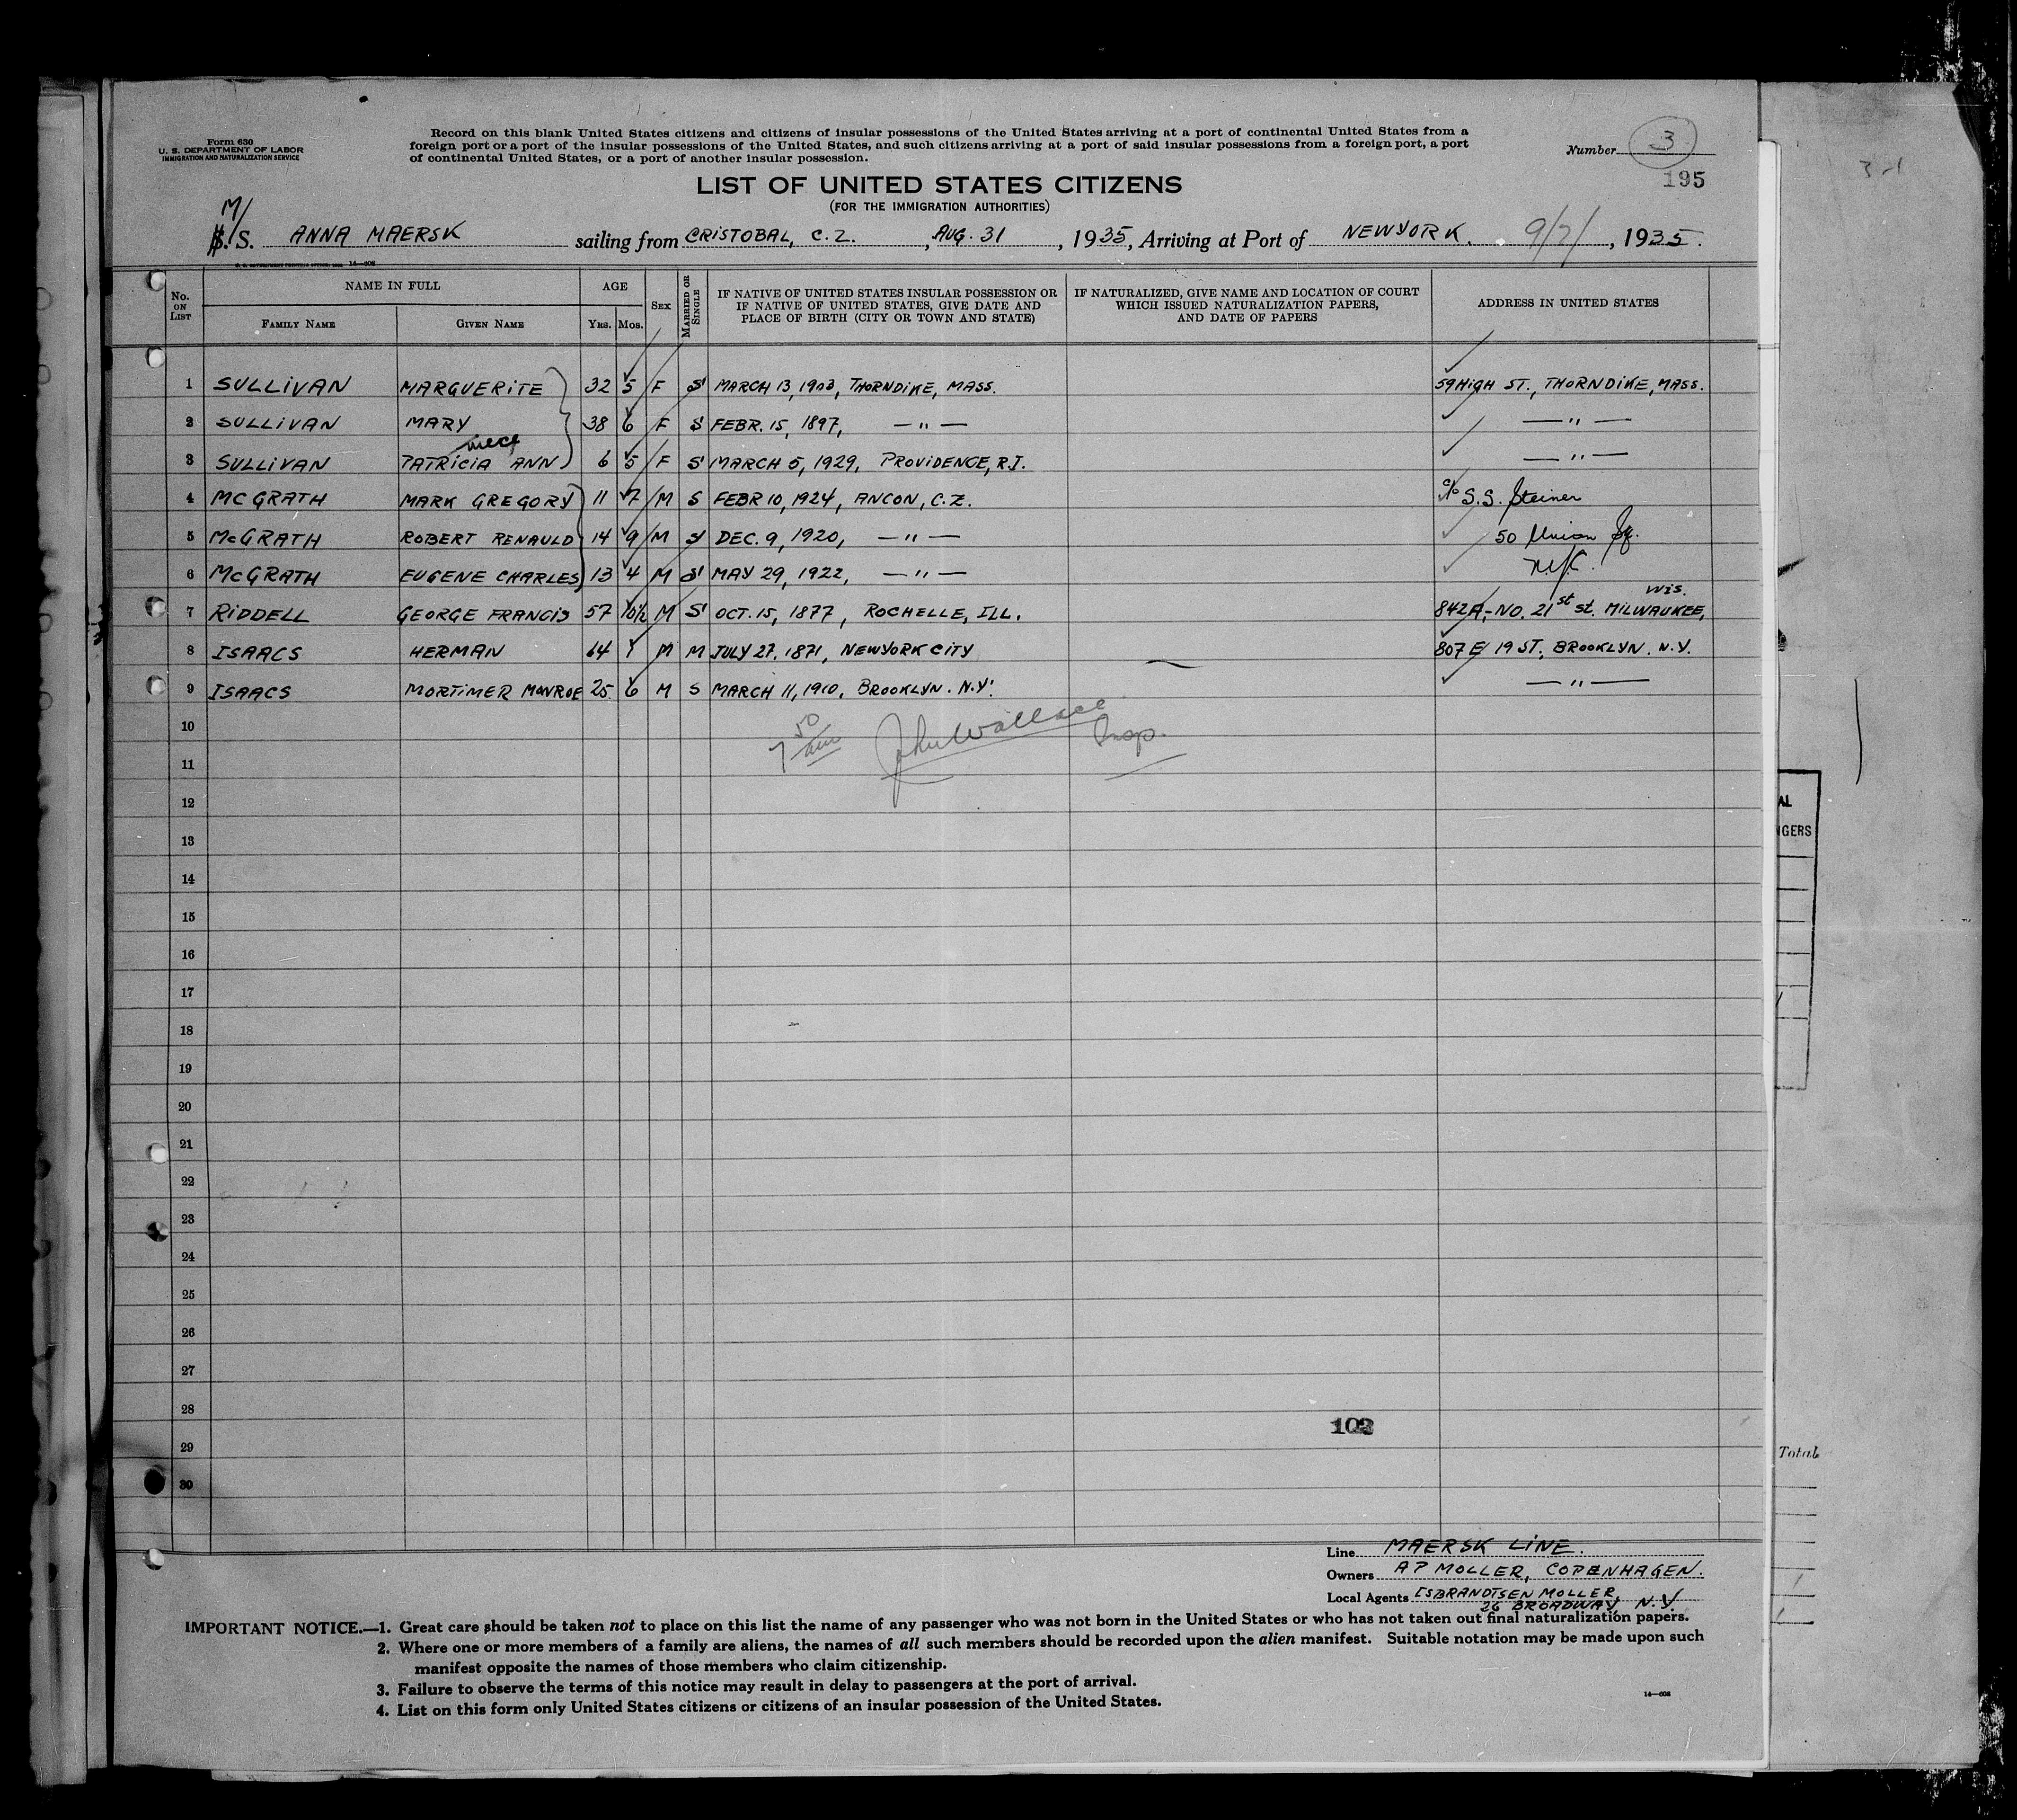 Form 630
U. S. DEPARTMENT OF LABOR
IMMIGRATION AND NATURALIZATION SERVICE
Record on this blank United States citizens and citizens of insular possessions of the United States arriving at a port of continental United States from a
foreign port or a port of the insular possessions of the United States, and such citizens arriving at a port of said insular possessions from a foreign port, a port
of continental United States, or a port of another insular possession.
Number 3
195
3-1
LIST OF UNITED STATES CITIZENS
(FOR THE IMMIGRATION AUTHORITIES)
M/
S. S. ANNA MAERSK sailing from CRISTOBAL, C. Z., AUG. 31, 1935, Arriving at Port of NEWYORK. 9/7/, 1935.
14—608
No. ON LIST
NAME IN FULL
FAMILY NAME GIVEN NAME
AGE
YRS. MOS.
SEX
MARRIED OR SINGLE
IF NATIVE OF UNITED STATES INSULAR POSSESSION OR
IF NATIVE OF UNITED STATES, GIVE DATE AND
PLACE OF BIRTH (CITY OR TOWN AND STATE)
IF NATURALIZED, GIVE NAME AND LOCATION OF COURT
WHICH ISSUED NATURALIZATION PAPERS,
AND DATE OF PAPERS
ADDRESS IN UNITED STATES
1 SULLIVAN MARGUERITE 32 5 F S MARCH 13, 1903, THORNDIKE, MASS. 59 HIGH ST., THORNDIKE, MASS.
2 SULLIVAN MARY 38 6 F S FEBR. 15, 1897, — " — — " —
niece
3 SULLIVAN PATRICIA ANN 6 5 F S MARCH 5, 1929, PROVIDENCE, R.I. — " —
4 MC GRATH MARK GREGORY 11 7 M S FEBR 10, 1924, ANCON, C.Z. c/o S.S. Steiner
5 McGRATH ROBERT RENAULD 14 9 M S DEC. 9, 1920, — " — 50 Union Sq.
6 McGRATH EUGENE CHARLES 13 4 M S MAY 29, 1922, — " — N.Y.C.
WIS.
7 RIDDELL GEORGE FRANCIS 57 10½ M S OCT. 15, 1877, ROCHELLE, ILL. 842A,-NO. 21st st. MILWAUKEE,
8 ISAACS HERMAN 64 1 M M JULY 27, 1871, NEWYORK CITY 807 E 19 ST., BROOKLYN. N.Y.
9 ISAACS MORTIMER MONROE 25 6 M S MARCH 11, 1910, BROOKLYN. N.Y. — " —
10
7 50 am John Wallace Insp.
11
12
13
14
15
16
17
18
19
20
21
22
23
24
25
26
27
28
102
29
30
AL
NGERS
Total
Line MAERSK LINE.
Owners A P MOLLER, COPENHAGEN.
Local Agents ISBRANDTSEN MOLLER,
26 BROADWAY, N.Y.
IMPORTANT NOTICE.—1. Great care should be taken not to place on this list the name of any passenger who was not born in the United States or who has not taken out final naturalization papers.
2. Where one or more members of a family are aliens, the names of all such members should be recorded upon the alien manifest. Suitable notation may be made upon such
manifest opposite the names of those members who claim citizenship.
3. Failure to observe the terms of this notice may result in delay to passengers at the port of arrival.
4. List on this form only United States citizens or citizens of an insular possession of the United States.
14—608